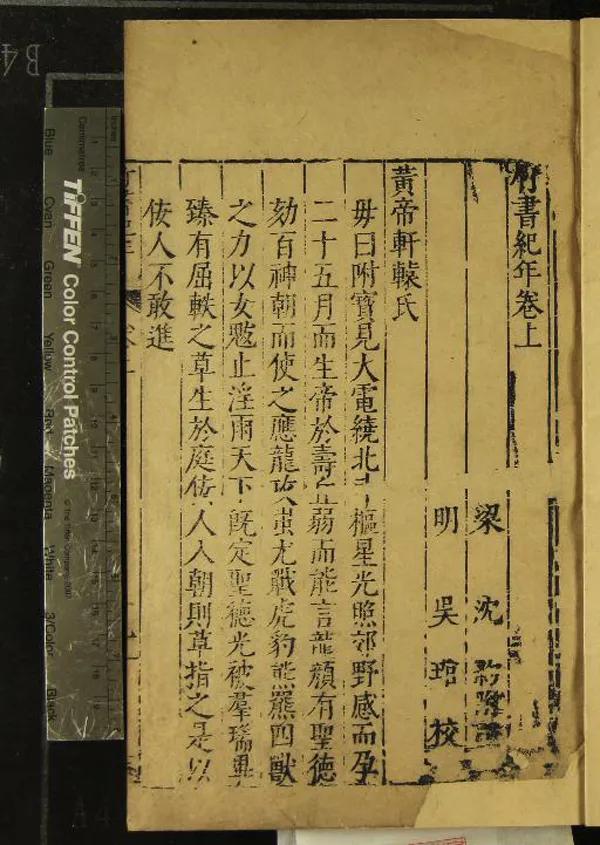 竹書紀年卷上
梁 沈
明 吳 琯 校
黃帝軒轅氏
毋曰附寶見大電繞北斗樞星光照郊野感而孕
二十五月而生帝於壽丘弱而能言龍顏有聖德
劾百神朝而使之應龍攻蚩尤戰虎豹熊羆四獸
之力以女魃止淫雨天下既定聖德光被羣瑞畢
臻有屈軼之草生於庭佞人入朝則草指之是以
佞人不敢進
TIFFEN Color Control Patches
Centimetres
Inches
Blue
Cyan
Green
Yellow
Red
Magenta
White
3/Color
Black
B4
A4